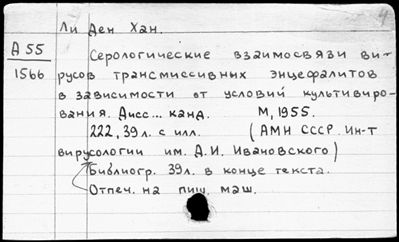 Ли Ден Хан.
А 55
1566
Серологические взаимосвязи ви-
русов трансмиссивных энцефалитов
в зависимости от условий культивиро-
вания. Дисс... канд. М, 1955.
222, 39 л. с илл. (АМН СССР. Ин-т
вирусологии им. Д.И. Ивановского)
Библиогр. 39л. в конце текста.
Отпеч. на пиш. маш.